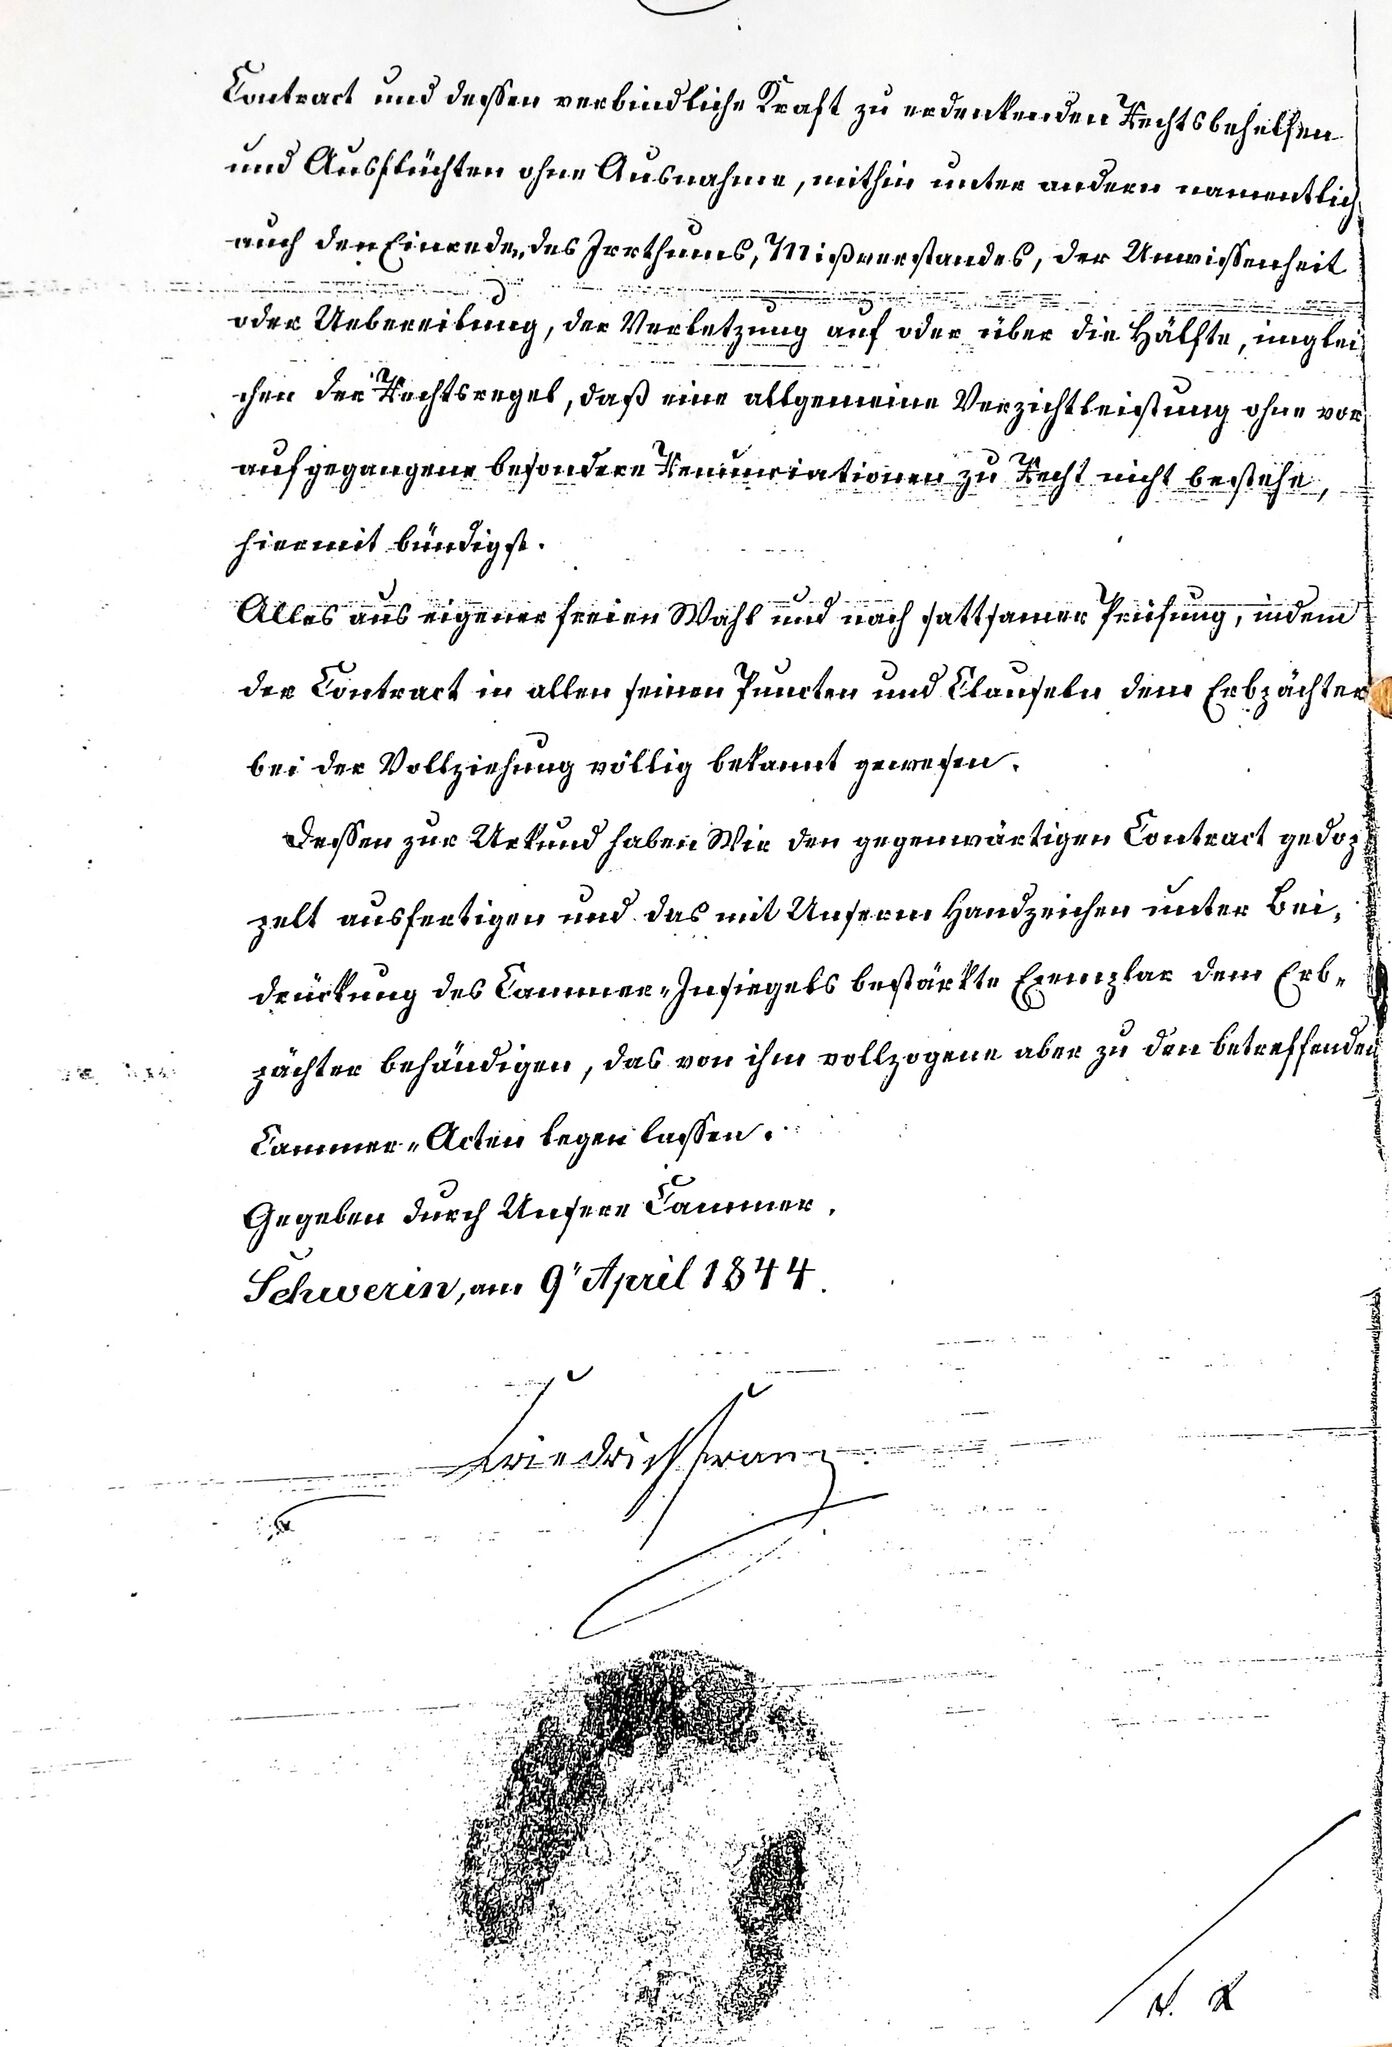 Contract und dessen verbindliche Kraft zu erdenkenden Rechtsbehelfen
und Ausflüchten ohne Ausnahme, mithin unter andern namentlich
auch den Einreden, des Irrthums, Mißverstandes, der Unwissenheit
oder Uebereilung, der Verletzung auf oder über die Hälfte, imglei
chen der Rechtsregel, daß eine allgemeine Verzichtleistung ohne vor
aufgegangene besondere Renunciationen zu Recht nicht bestehe,
hiermit bündigst.
Alles aus eigener freien Wahl und nach sattsamer Prüfung, indem
der Contract in allen seinen Puncten und Clauseln dem Erbpächter
bei der Vollziehung völlig bekannt gewesen.
Dessen zur Urkund haben Wir den gegenwärtigen Contract gedop
pelt ausfertigen und das mit Unserm Handzeichen unter Bei,
drückung des Cammer-Insiegels bestärkte Exemplar dem Erb-
pächter behändigen, das von ihm vollzogene aber zu den betreffenden
Cammer-Acten legen lassen.
Gegeben durch Unsere Cammer.
Schwerin, am 9. April 1844.
Friedrich Franz